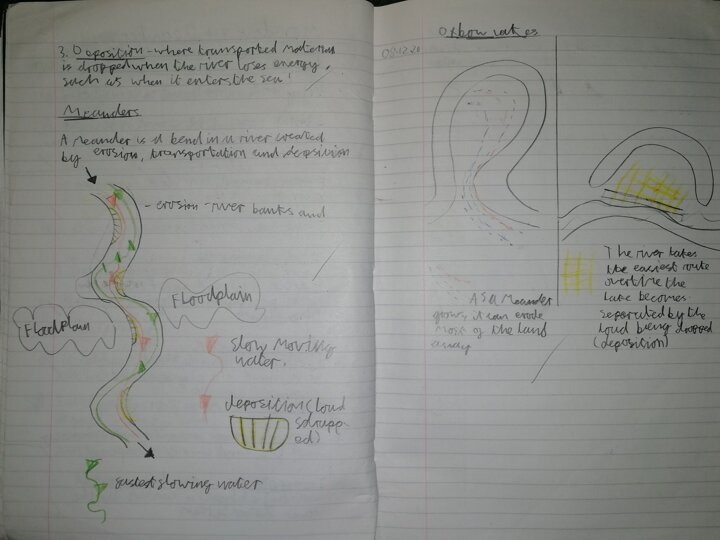 3. Deposition - where transported material
is dropped when the river loses energy,
such as when it enters the sea!
Meanders
A meander is a bend in a river created
by erosion, transportation and deposition
- erosion - river banks and
Floodplain
Floodplain
slow moving
water.
deposition (load
is dropp-
ed)
fastest flowing water
Oxbow lakes
08.12.20
As a meander
grows, it can erode
most of the land
away
The river takes
the easiest route
overtime the
lake becomes
separated by the
load being dropped
(deposition)